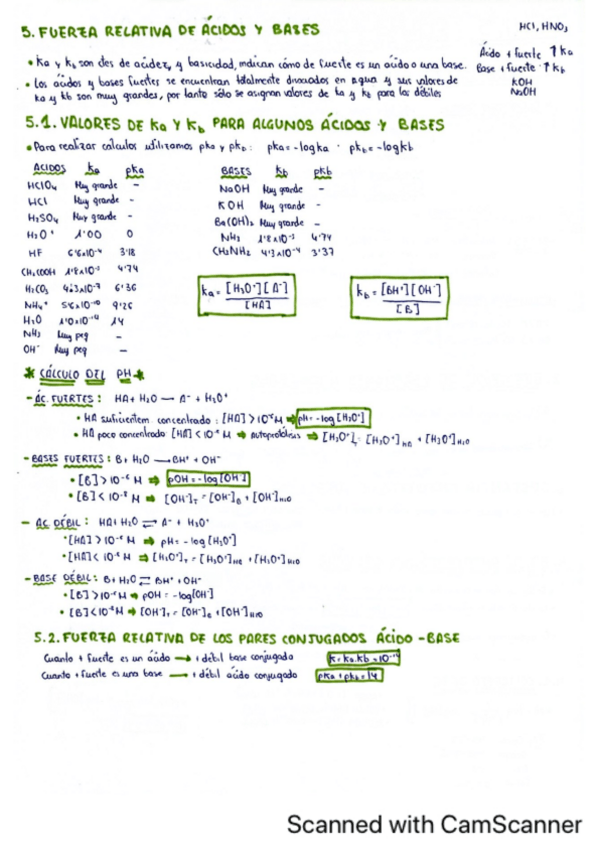 5. FUERZA RELATIVA DE ÁCIDOS Y BASES
HCl, HNO3
• Ka y Kb son ctes de acidez y basicidad, indican cómo de fuerte es un ácido o una base.
Ácido + fuerte ↑ Ka
Base + fuerte ↑ Kb
KOH
NaOH
• Los ácidos y bases fuertes se encuentran totalmente disociados en agua y sus valores de
ka y kb son muy grandes, por tanto sólo se asignan valores de ka y kb para los débiles
5.1. VALORES DE Ka Y Kb PARA ALGUNOS ÁCIDOS Y BASES
• Para realizar calculos utilizamos pka y pkb: pka = -logka · pkb = -logkb
ÁCIDOS ka pka
HClO4 Muy grande -
HCl Muy grande -
H2SO4 Muy grande -
H3O+ 1'00 0
HF 6'6x10-4 3'18
CH3COOH 1'8x10-5 4'74
H2CO3 4'3x10-7 6'36
NH4+ 5'6x10-10 9'25
H2O 1'0x10-14 14
NH3 Muy peq -
OH- Muy peq -
BASES kb pkb
NaOH Muy grande -
KOH Muy grande -
Ba(OH)2 Muy grande -
NH3 1'8x10-5 4'74
CH3NH2 4'3x10-4 3'37
ka = [H3O+][A-] / [HA]
kb = [BH+][OH-] / [B]
* CÁLCULO DEL PH *
- ÁC. FUERTES: HA + H2O → A- + H3O+
• HA suficientem concentrado: [HA] > 10-6 M ⇒ pH = -log [H3O+]
• HA poco concentrado [HA] < 10-6 M ⇒ Autoprotólisis ⇒ [H3O+]T = [H3O+]HA + [H3O+]H2O
- BASES FUERTES: B + H2O → BH+ + OH-
• [B] > 10-6 M ⇒ pOH = -log[OH-]
• [B] < 10-6 M ⇒ [OH-]T = [OH-]B + [OH-]H2O
- AC. DÉBIL: HA + H2O ⇌ A- + H3O+
• [HA] > 10-6 M ⇒ pH = -log [H3O+]
• [HA] < 10-6 M ⇒ [H3O+]T = [H3O+]HA + [H3O+]H2O
- BASE DÉBIL: B + H2O ⇌ BH+ + OH-
• [B] > 10-6 M ⇒ pOH = -log[OH-]
• [B] < 10-6 M ⇒ [OH-]T = [OH-]B + [OH-]H2O
5.2. FUERZA RELATIVA DE LOS PARES CONJUGADOS ÁCIDO-BASE
Cuanto + fuerte es un ácido → + débil base conjugada k = ka.kb = 10-14
Cuanto + fuerte es una base → + débil ácido conjugado pka + pkb = 14
Scanned with CamScanner